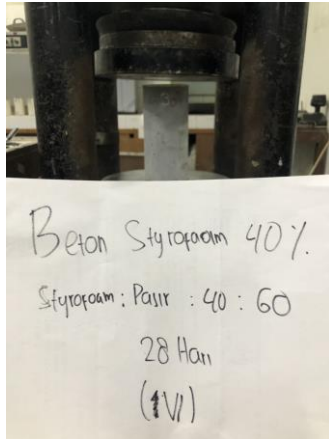 Beton Styrofoam 40%.
Styrofoam : Pasir : 40 : 60
28 Hari